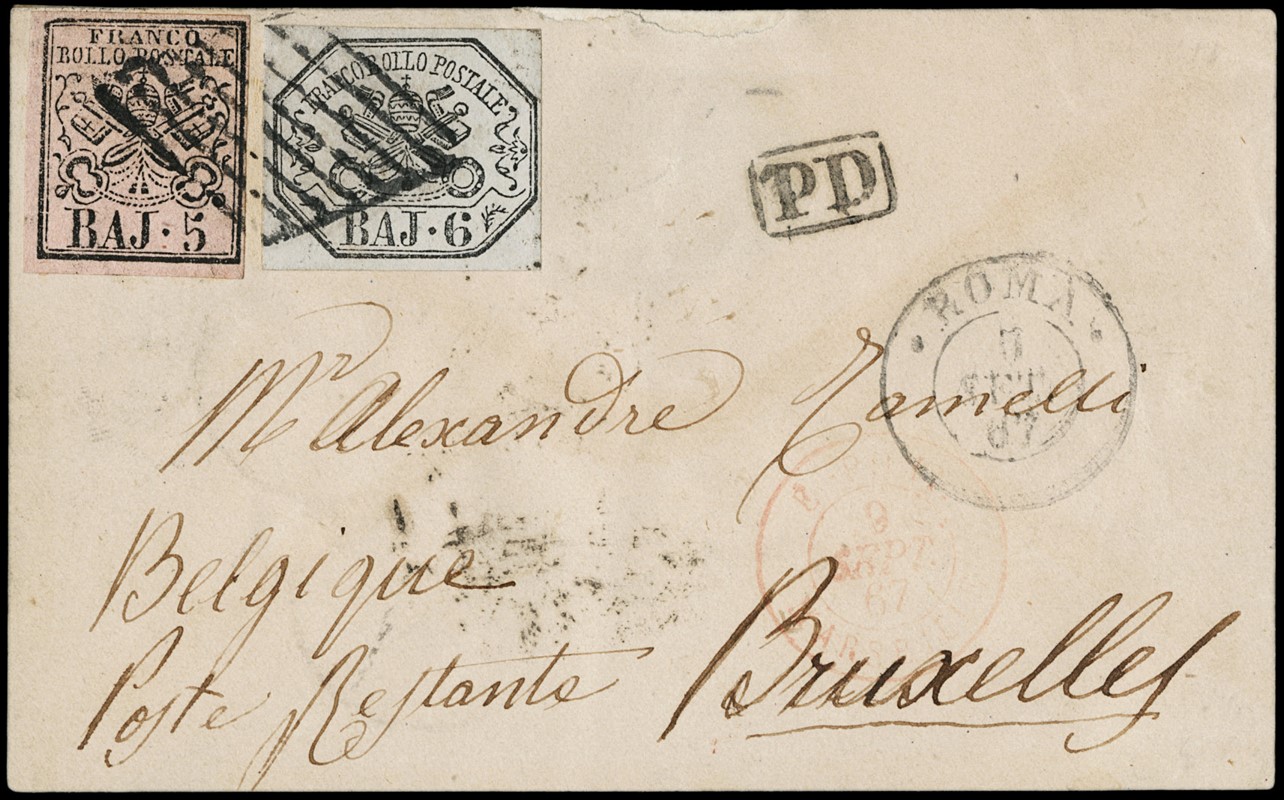 FRANCO
BOLLO POSTALE
BAJ. 5
FRANCO BOLLO POSTALE
BAJ. 6
PD
ROMA
5
SET
67
Mr Alexandre Tomelli
9
SEPT
67
Belgique
Poste Restante
Bruxelles